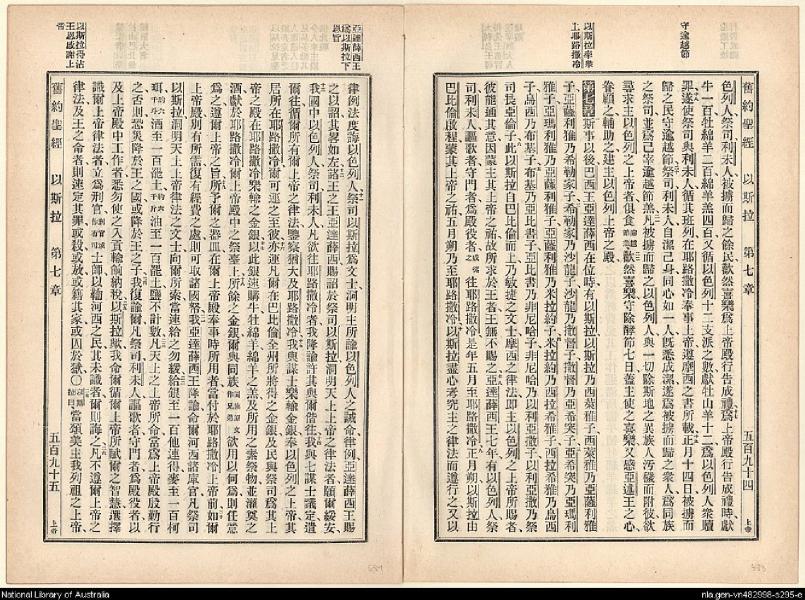 守逾越節
以斯拉奉命
上耶路撒冷
舊約聖經 以斯拉 第七章 五百九十四 上帝
色列人祭司利未人被擄而歸之餘民歡然喜樂爲上帝殿行告成禮爲上帝殿行告成禮時獻
牛一百牡綿羊二百綿羊羔四百又循以色列十二支派之數獻牡山羊十二爲以色列人衆贖
罪遂使祭司與利未人循其班列在耶路撒冷奉事上帝遵摩西之書所載正月十四日被擄而
歸之民守逾越節祭司利未人自潔己身同心如一人既悉成潔遂爲被擄而歸之衆人爲同族
之祭司並爲己宰逾越節羔凡被擄而歸之以色列人與一切除斯地之異族人污穢而附彼欲
尋求主以色列之上帝者俱食歡然喜樂守除酵節七日蓋主使之喜樂又感亞述王之心
眷顧之輔助之建主以色列上帝之殿
第七章 斯事以後巴西王亞達薛西在位時有以斯拉以斯拉乃西萊雅子西萊雅乃亞薩利雅
子亞薩利雅乃希勒家子希勒家乃沙龍子沙龍乃撒督子撒督乃亞希突子亞希突乃亞瑪利
雅子亞瑪利雅乃亞薩利雅子亞薩利雅乃米拉約子米拉約乃西拉希雅子西拉希雅乃烏西
子烏西乃布基子布基乃亞比書子亞比書乃非尼哈子非尼哈乃以利亞撒子以利亞撒乃祭
司長亞倫子此以斯拉自巴比倫而上乃敏捷之文士摩西之律法即主以色列之上帝所賜者
彼能通其意因蒙主其上帝之祐故所求於王者王無不賜之亞達薛西王七年有以色列人祭
司利未人謳歌者守門者爲殿役者往耶路撒冷是年五月至耶路撒冷正月朔以斯拉由
巴比倫啟程蒙其上帝之祐五月朔乃至耶路撒冷以斯拉盡心考究主之律法而遵行之又以
亞達薛西王
爲以斯拉下
恩旨
以斯拉得沾
王恩故謝上
帝
律例法度誨以色列人祭司以斯拉爲文士洞明主所諭以色列人之誡命律例亞達薛西王賜
之以詔其畧如左諸王之王亞達薛西賜詔於祭司以斯拉洞明天上上帝之律法者願爾綏安
我國中以色列人祭司利未人凡欲往耶路撒冷者我降諭許其與爾偕往我與七謀士議定遣
爾往循爾所有爾上帝之律法鑒察猶大及耶路撒冷我與謀士樂輸金銀奉以色列之上帝其
居所在耶路撒冷爾可運之至彼亦運凡爾在巴比倫全州所將得之金銀及民與祭司爲其上
帝之殿在耶路撒冷樂輸之金銀以此銀速購牛牡綿羊綿羊之羔及所用之素祭物並灌奠之
酒獻於耶路撒冷爾上帝殿中之祭臺上所餘之金銀爾與同族欲用以何爲則任意
爲之遵爾上帝之旨所予爾之器皿在爾上帝殿奉事時所用者當付於耶路撒冷上帝前如爾
上帝殿別有所需復有經費之處則可取諸國帑我亞達薛西王降諭命爾河西諸庫官凡祭司
以斯拉洞明天上上帝律法之文士向爾所索當速給之勿緩給銀至一百他連得麥至一百柯
珥酒至一百罷土油至一百罷土鹽不計數凡天上之上帝所命當爲上帝殿殷勤行
之否則恐震怒降於王之國或降於王之子我復諭爾凡祭司利未人謳歌者守門者爲殿役者以
及上帝殿中工作者悉勿使之入貢輸餉納稅以斯拉歟我命爾循爾上帝所賦爾之智慧選擇
識爾上帝律法者立爲刑官士師以鞫河西之民其未識者爾則誨之凡不遵爾上帝之
律法及王之命者則速定其罪或殺或放或籍其家或囚於獄〇當頌美主我列祖之上帝
舊約聖經 以斯拉 第七章 五百九十五 上帝
National Library of Australia
nla.gen-vn482998-s295-e